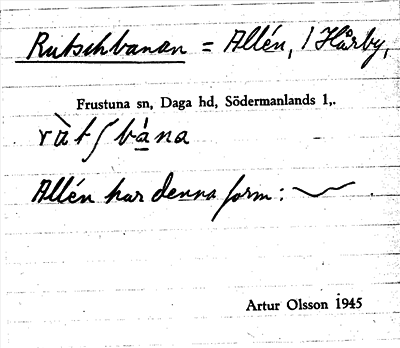 Rutschbanan = Allén, i Hårby,
Frustuna sn, Daga hd, Södermanlands l,.
ràtʃbána
Allén har denna form:
Artur Olsson 1945